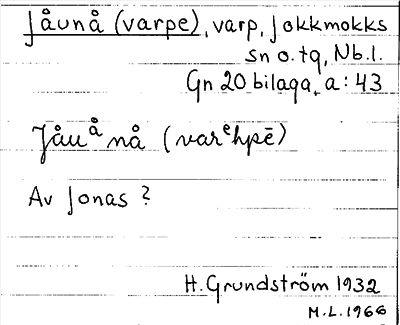 Jåunå (varpe), varp, Jokkmokks
sn o. tg, Nb.l.
Gn 20 bilaga, a: 43
Jåuånå (varehpē)
Av Jonas ?
H. Grundström 1932
M.L. 1966